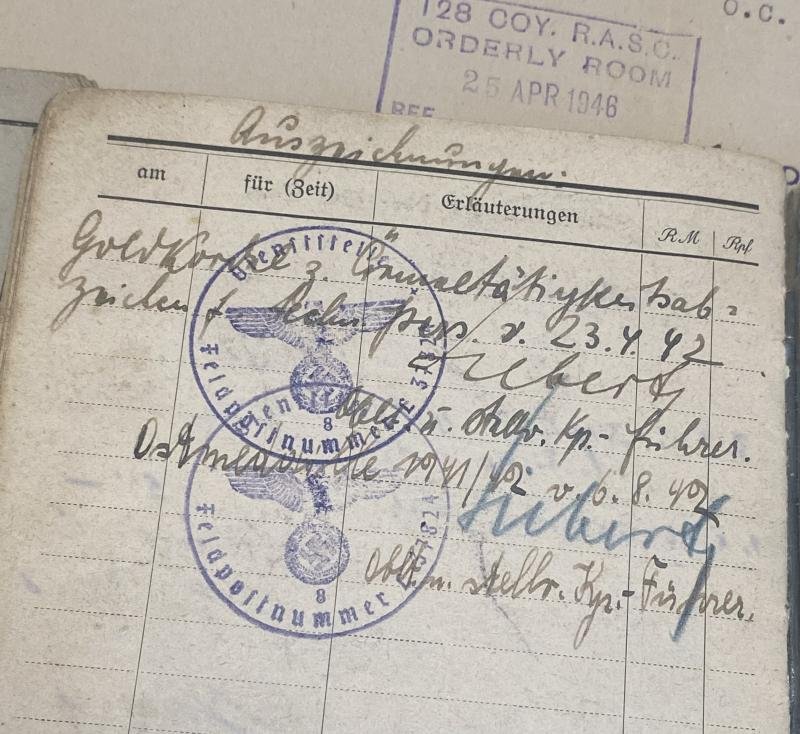 128 COY. R.A.S.C.
ORDERLY ROOM
25 APR 1946
REF
O.C.
Auszeichnungen:
am für (Zeit) Erläuterungen RM Rpf
z. tätigkeitsab=
zeichen f. techn. pers. v. 23.4.42
Siebert
Oblt. u. stellv. Kp.-Führer.
Ostmedaille 1941/42 v. 6.8.42
Siebert
Oblt. u. stellv. Kp.-Führer.
Dienststelle
Feldpostnummer
8
Feldpostnummer
8